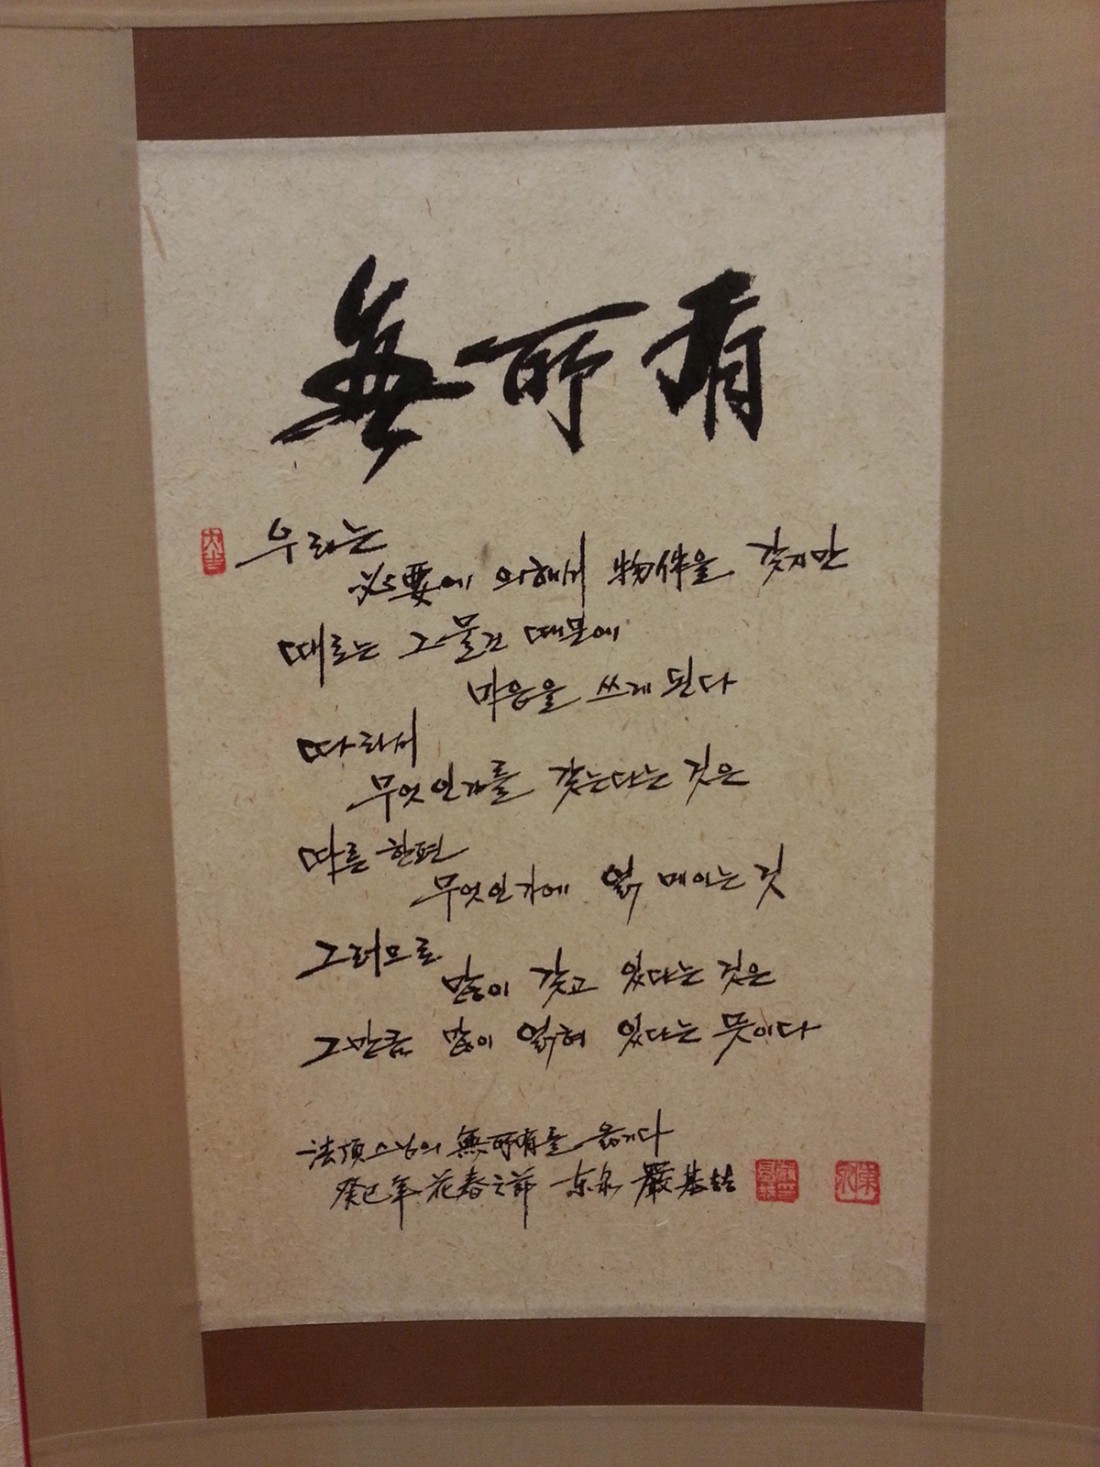 無所有
우리는
必要에 의해서 物件을 갖지만
때로는 그 물건 때문에
마음을 쓰게 된다
따라서
무엇인가를 갖는다는 것은
다른 한편
무엇인가에 얽메이는 것
그러므로
많이 갖고 있다는 것은
그만큼 많이 얽혀 있다는 뜻이다
法頂스님의 無所有를 옮기다
癸巳年 花春之節 东泉 嚴基喆